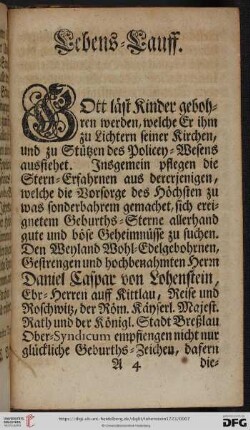 Lebens-Lauff.
GOtt läst Kinder geboh-
ren werden, welche Er ihm
zu Lichtern seiner Kirchen,
und zu Stützen des Policey-Wesens
aussiehet. Insgemein pflegen die
Stern-Erfahrnen aus dererjenigen,
welche die Vorsorge des Höchsten zu
was sonderbahrem gemachet, sich ereig-
netem Geburths-Sterne allerhand
gute und böse Geheimnüsse zu suchen.
Den Weyland Wohl-Edelgebohrnen,
Gestrengen und hochbenahmten Herrn
Daniel Caspar von Lohenstein,
Erb-Herren auff Kittlau, Reise und
Roschwitz, der Röm. Käyserl. Majest.
Rath und der Königl. Stadt Breßlau
Ober-Syndicum empfiengen nicht nur
glückliche Geburths-Zeichen, dafern
A 4 die-